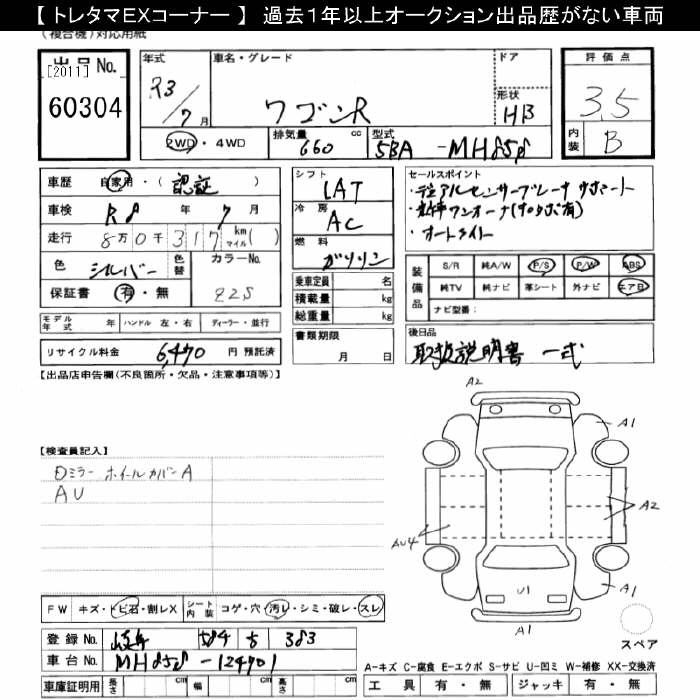 【 トレタマEXコーナー 】 過去1年以上オークション出品歴がない車両
(複合機)対応用紙
出品No.
[2011]
60304
年式 車名・グレード ドア
R3/7月 ワゴンR 形状 HB
2WD・4WD 排気量 660 cc 型式 5BA-MH85S
評価点
3.5
内装 B
車歴 自家用・( 認証 )
車検 R8 年 7 月
走行 8万0千317 km マイル( )
色 シルバー 色替 カラーNo.
Z2S
保証書 有・無
モデル年式 年 ハンドル 左・右 ディーラー・並行
リサイクル料金 6,470 円 預託済
シフト
IAT
冷房
AC
燃料
ガソリン
乗車定員 名
積載量 kg
総重量 kg
書類期限
月 日
セールスポイント
・デュアルセンサーブレーキサポート
・オートライト
装備品
S/R 純A/W P/S P/W ABS
純TV 純ナビ 革シート 外ナビ エアB
ナビ型番:
後日品
取扱説明書 一式
【出品店申告欄(不良箇所・欠品・注意事項等)】
【検査員記入】
Dミラー ホイールカバーA
AU
A2
A1
A2
AU4
A1
U1
A1
スペア
FW キズ・トビ石・割レX シート内装 コゲ・穴・汚レ・シミ・破レ・スレ
登録No. 584 383
車台No. MH85S-124901
車庫証明用 長さ cm 幅 cm 高さ cm
A-キズ C-腐食 E-エクボ S-サビ U-凹ミ W-補修 XX-交換済
工具 有・無 ジャッキ 有・無